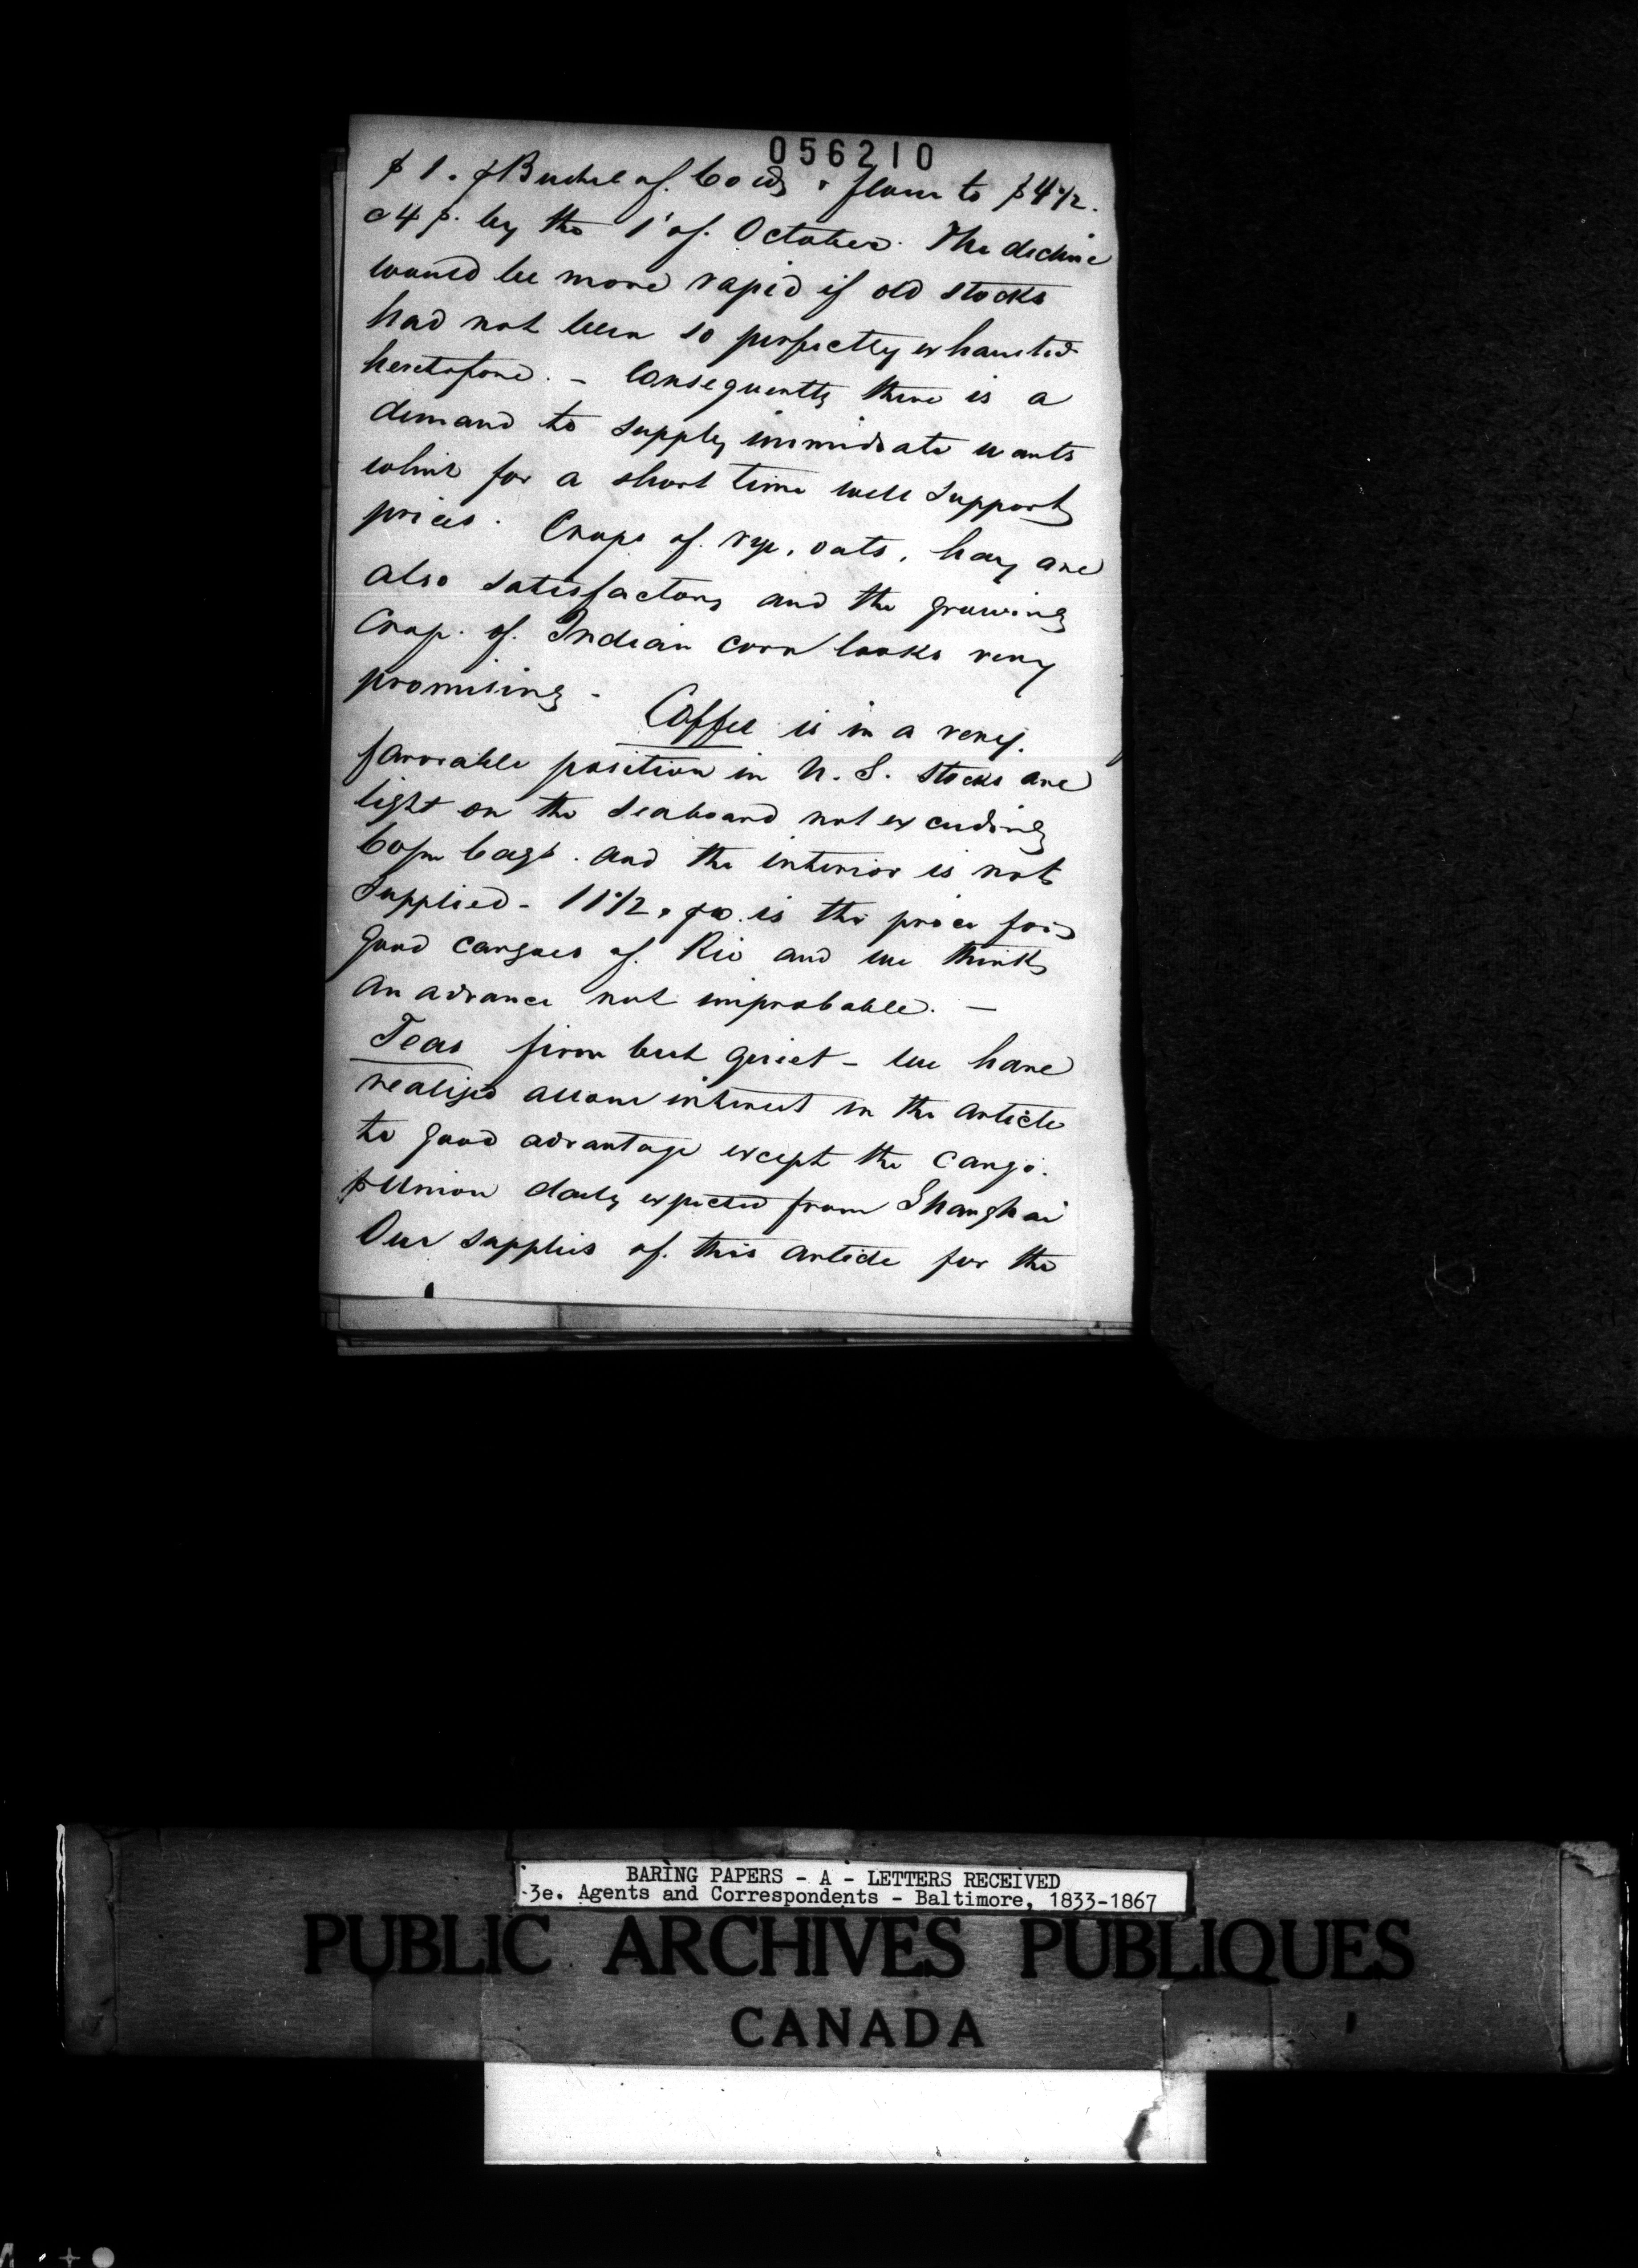 056210
$ 1. ⅌ Bushel of 60 lbs & flour to $ 4 1/2.
a 4 $. by the 1' of October. The decline
would be more rapid if old stocks
had not been so perfectly exhausted
heretofore. - Consequently there is a
demand to supply immediate wants
which for a short time will support
prices. Crops of rye, oats, hay are
also satisfactory and the growing
Crop of Indian corn looks very
promising - Coffee is in a very
favorable position in U. S. Stocks are
light on the Seaboard not exceeding
60/m bags. and the interior is not
supplied - 11 1/2 is the price for
good cargoes of Rio and we think
an advance not improbable. -
Teas firm but quiet - we have
realized all our interest in the article
to good advantage except the cargo
⅌ Union daily expected from Shanghai
Our supplies of this article for the
BARING PAPERS - A - LETTERS RECEIVED
3e. Agents and Correspondents - Baltimore, 1833-1867
PUBLIC ARCHIVES PUBLIQUES
CANADA